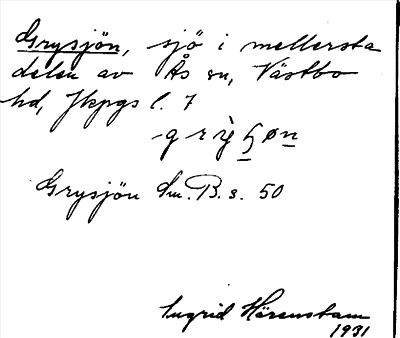 Grysjön, sjö i mellersta
delen av Ås sn, Västbo
hd, Jkpgs l. 7
Grysjön Sm. B. s. 50
Ingrid Härenstam
1931